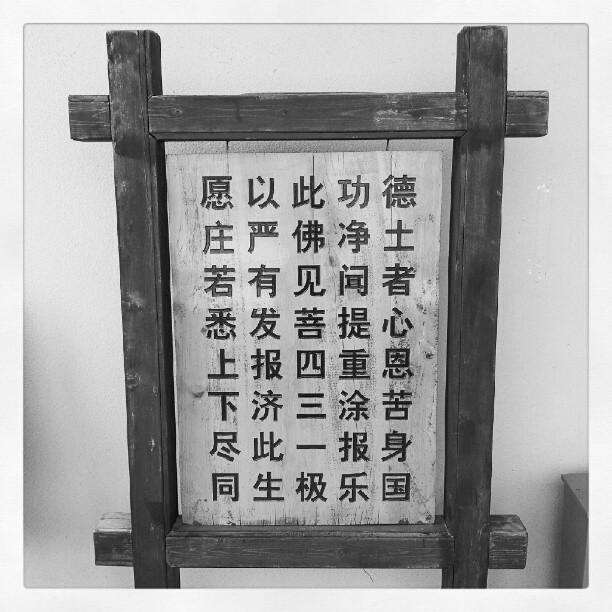 愿以此功德
庄严佛净土
若有见闻者
悉发菩提心
上报四重恩
下济三涂苦
尽此一报身
同生极乐国